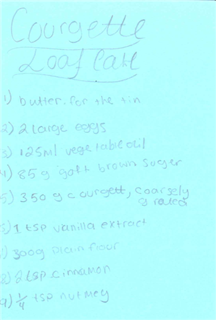 Courgette
Loaf Cake
1) butter, for the tin
2) 2 large eggs
3) 125ml vegetable oil
4) 85g soft brown suger
5) 350g courgette, coarsely
grated
6) 1 tsp vanilla extract
7) 300g plain flour
8) 2 tsp cinnamon
9) ¼ tsp nutmeg